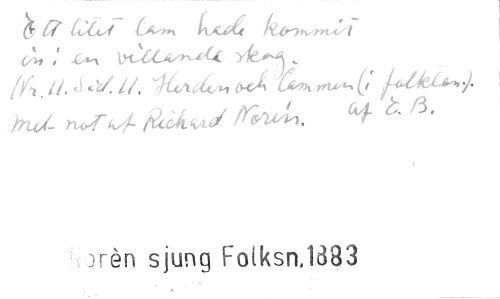 Ett litet lam hade kommit
in i en villande skog.
Nr. 11. Sid. 11. Herden och lammen (i folkton).
Mel. not af Richard Norén. af E. B.
Norèn sjung Folksn,1883